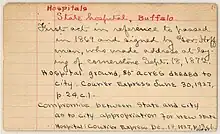 Hospitals
State hospital, Buffalo
First act in reference to passed
in 1869 and signed by Gov. Hoff
man, who made address at lay
ing of cornerstone Sept. 18, 1872
Hospital ground, 85 acres deeded to
city. Courier Express June 30, 1927,
p 24, c.1.
Compromise between State and city
as to city appropriation for new State
Hospital: Courier Express Dec. 17, 1927,